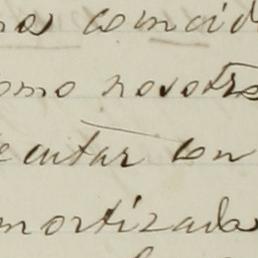 coincid
omo nosotro
ecutar con
mortizada